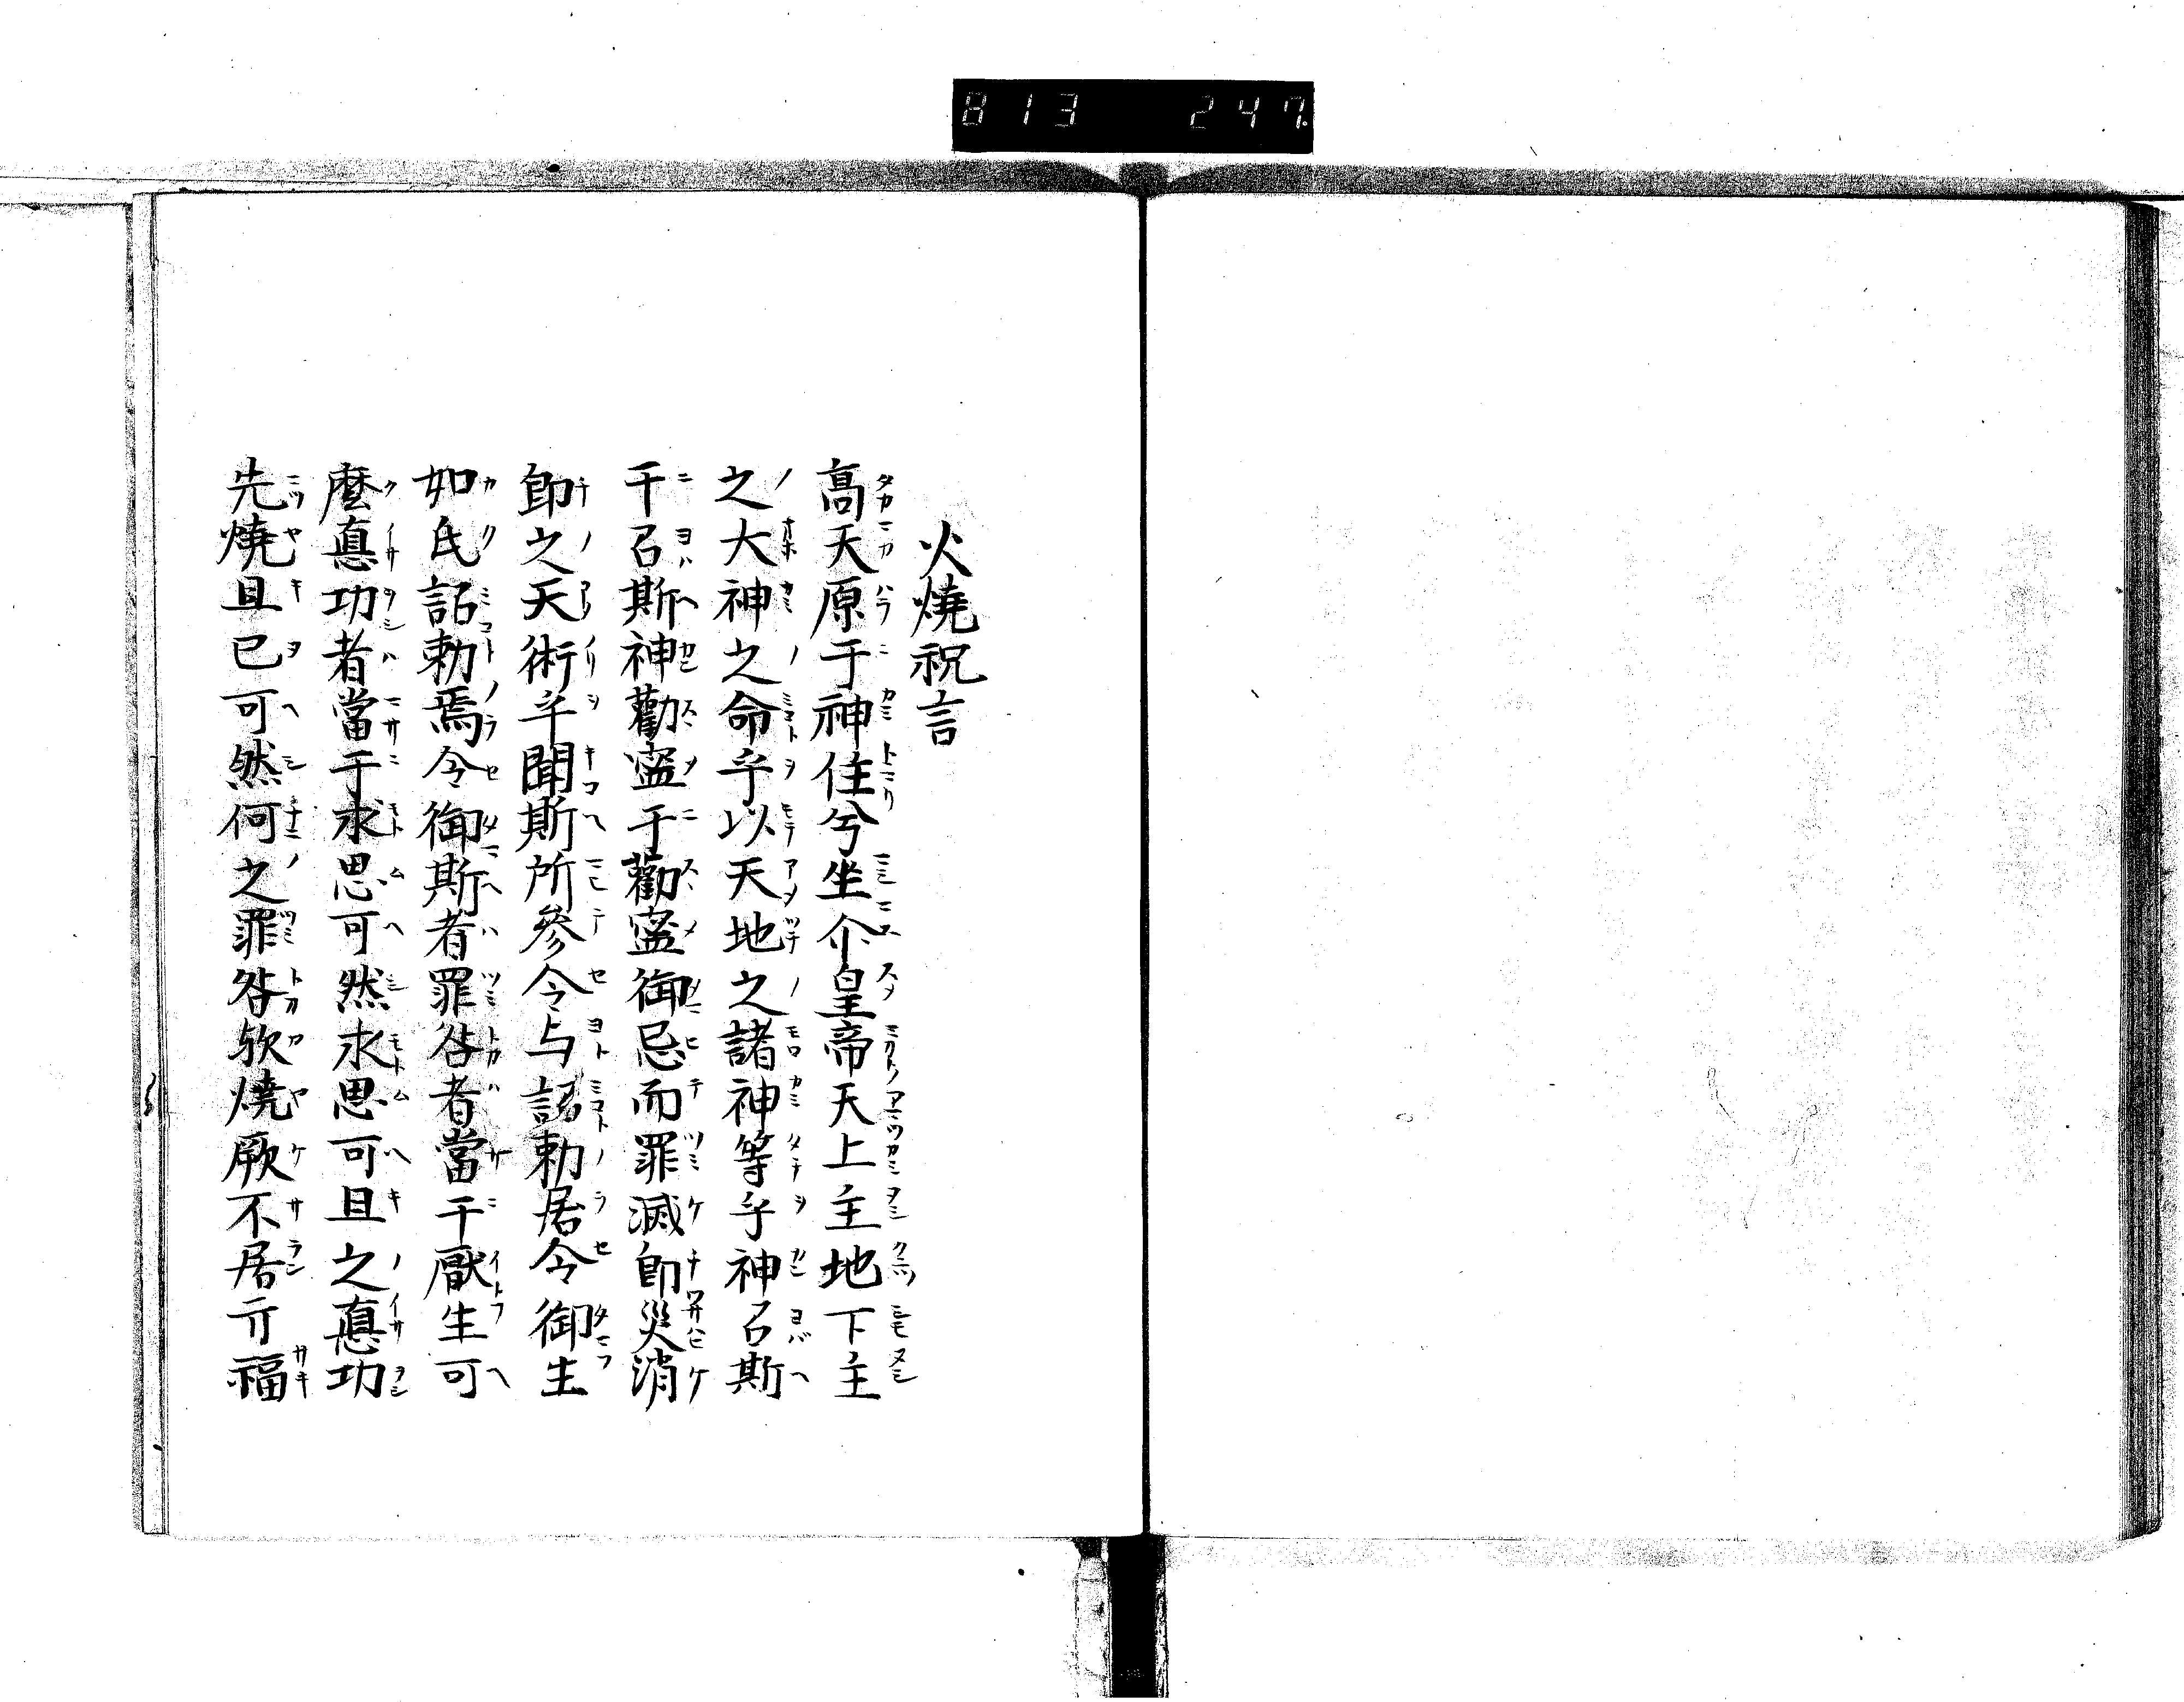 813 247.
火燒祝言
高天原于神住兮坐尒皇帝天上主地下主
之大神之命乎以天地之諸神等乎神召斯
于召斯神勸寍于勸寍御忌而罪滅即災消
即之天術乎聞斯所參令与詔勅居令御生
如氏詔勅焉令御斯者罪咎者當于厭生可
麼眞功者當于求思可然求思可且之眞功
先燒且已可然何之罪咎欤燒厥不居亓福